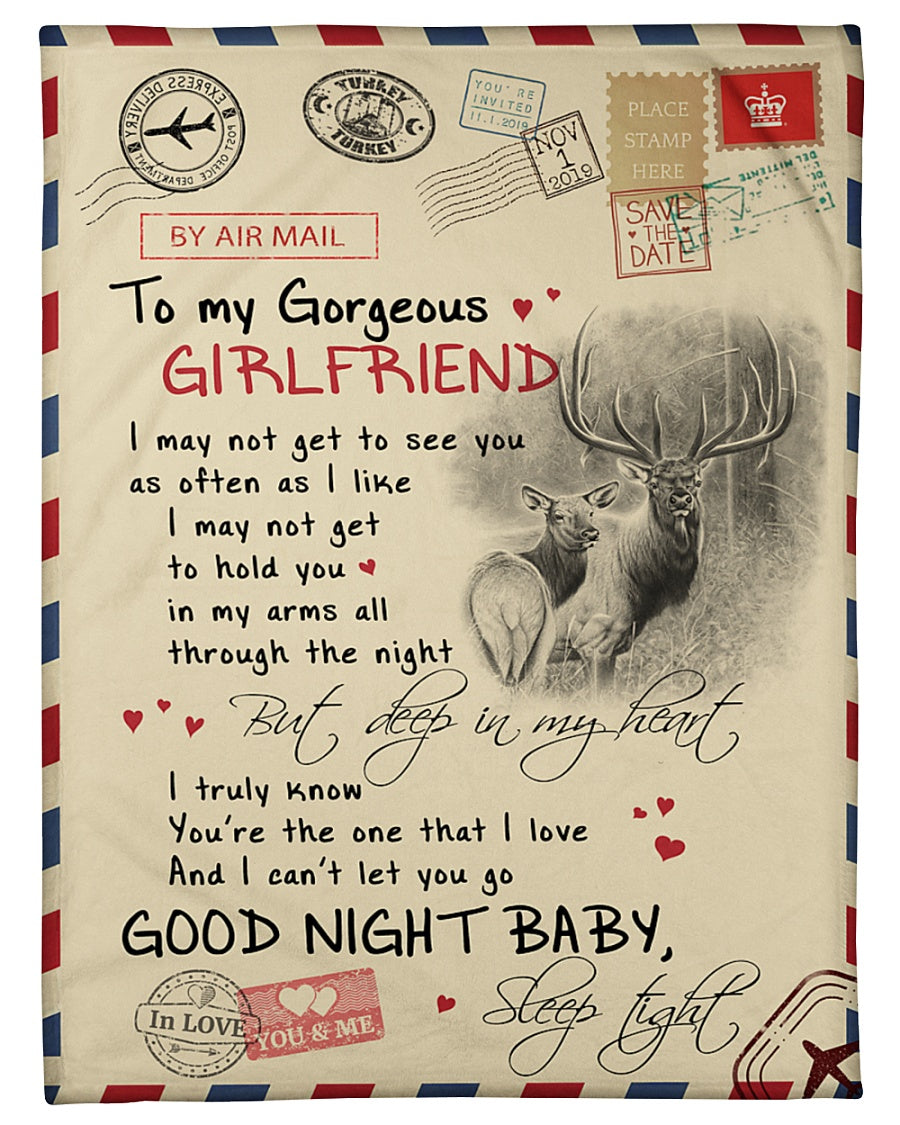 EXPRESS DELIVERY
POST OFFICE DEPARTMENT
TURKEY
TURKEY
YOU'RE
INVITED
11.1.2019
NOV
1
2019
PLACE
STAMP
HERE
DEL MITTENTE
SAVE
THE
DATE
BY AIR MAIL
To my Gorgeous
GIRLFRIEND
I may not get to see you
as often as I like
I may not get
to hold you
in my arms all
through the night
But deep in my heart
I truly know
You're the one that I love
And I can't let you go
GOOD NIGHT BABY,
Sleep tight
In LOVE
YOU & ME